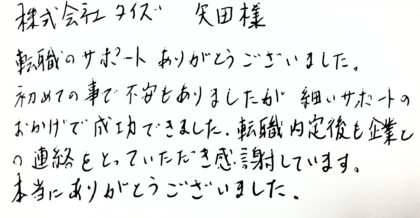 株式会社タイズ 矢田様
転職のサポートありがとうございました。
初めての事で不安もありましたが 細いサポートの
おかげで成功できました。転職内定後も企業と
の連絡をとっていただき感謝しています。
本当にありがとうございました。